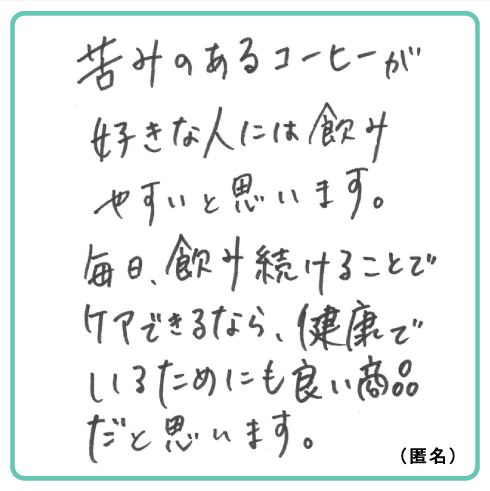 苦みのあるコーヒーが
好きな人には飲み
やすいと思います。
毎日、飲み続けることで
ケアできるなら、健康で
いるためにも良い商品
だと思います。
（匿名）